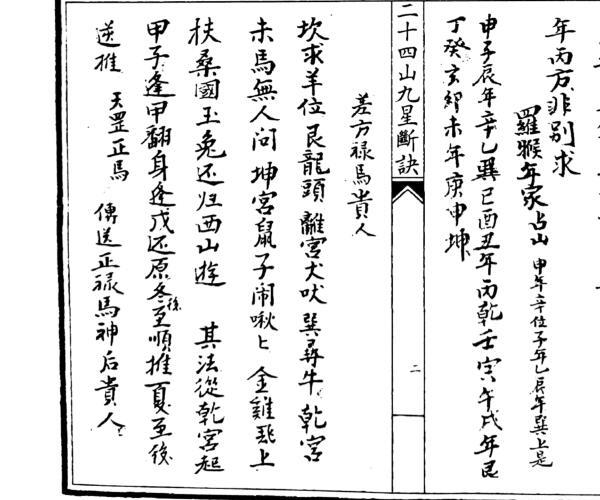 年丙方非別求
羅猴年家占山 申年辛位子年乙辰年巽上是
申子辰年辛乙巽巳酉丑年丙乾壬寅午戌年艮
丁癸亥卯未年庚申坤
二十四山九星斷訣
二
差方祿馬貴人
坎求羊位艮龍頭離宮犬吠巽尋牛乾宮
未馬無人問坤宮鼠子鬧啾々金雞飛上
扶桑國玉兔还归西山遊 其法從乾宮起
甲子逢甲翻身逢戊还原冬至後順推夏至後
逆推 天罡正馬 傳送正祿馬神后貴人